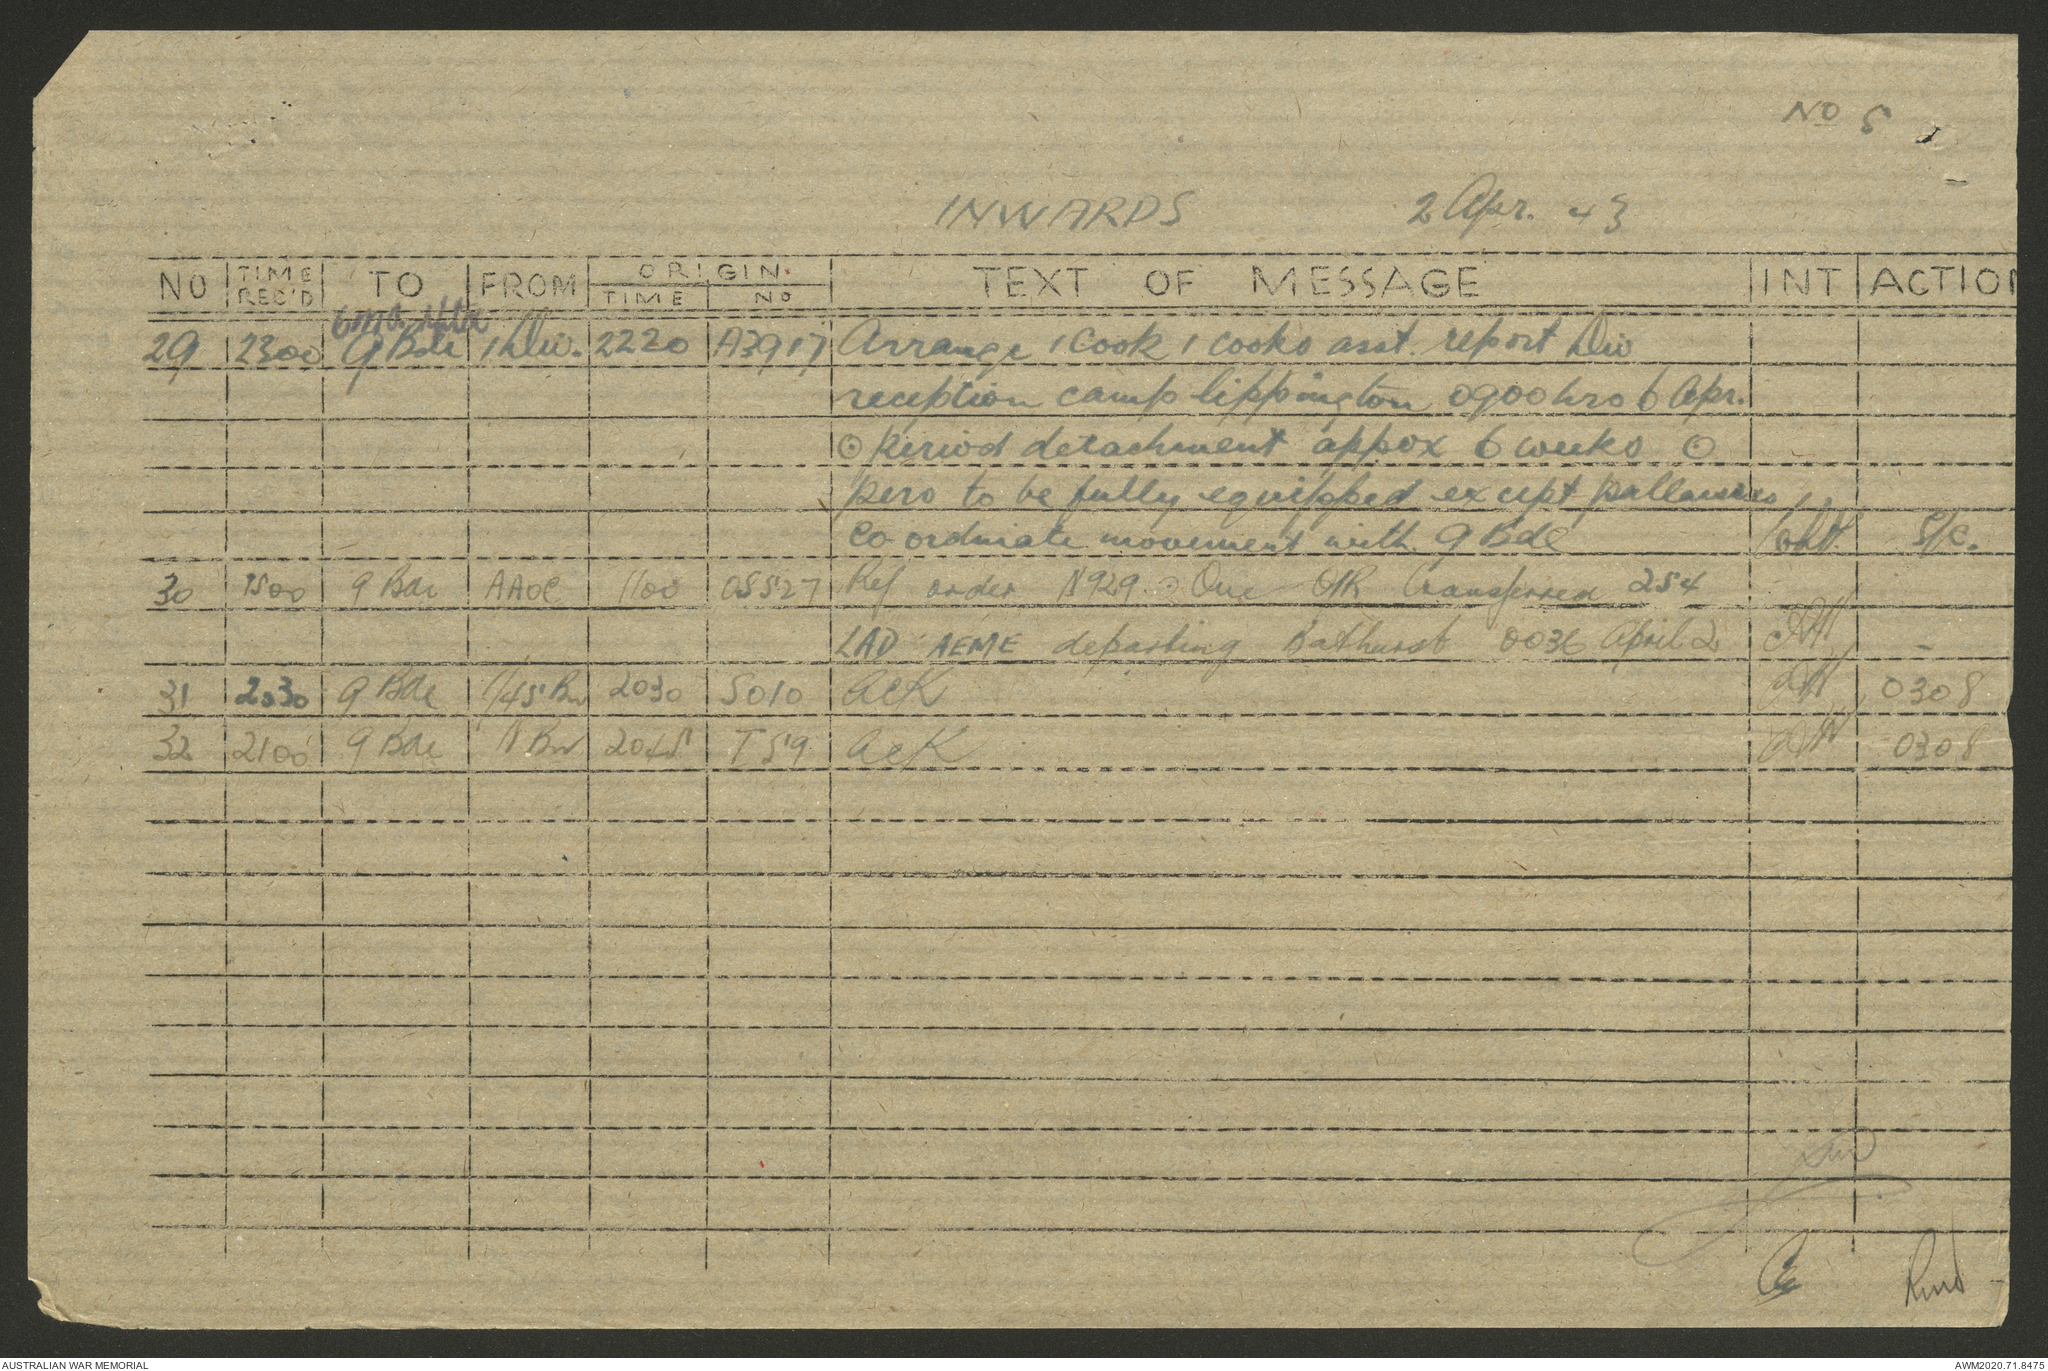 No 5
INWARDS 2 Apr. 43
NO TIME REC'D TO FROM ORIGIN TIME NO TEXT OF MESSAGE INT ACTION
29 2300 9 Bde 1 Div. 2220 A3917 Arrange 1 cook 1 cooks asst. report Div
reception camp lippington 0900 hrs 6 Apr.
⊙ Period detachment appox 6 weeks ⊙
pers to be fully equipped except
co ordinate movement with 9 Bde S/C.
30 1500 9 Bde AAOC 1100 OS527 Ref order N929 One O/R transferred 254
LAD AEME departing Bathurst 0036 April 2 -
31 2030 9 Bde 1/45 Bn 2030 S010 ACK 0308
32 2100 9 Bde Bn 2045 T59 ACK 0308
AUSTRALIAN WAR MEMORIAL AWM2020.71.8475